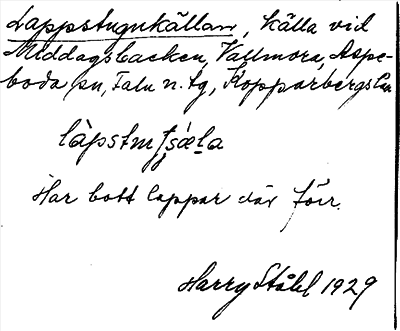 Lappstugukällan, källa vid
Middagsbacken, Vallmora, Aspe-
boda sn, Falu n. tg, Kopparbergs län.
Har bott lappar där förr.
Harry Ståhl 1929